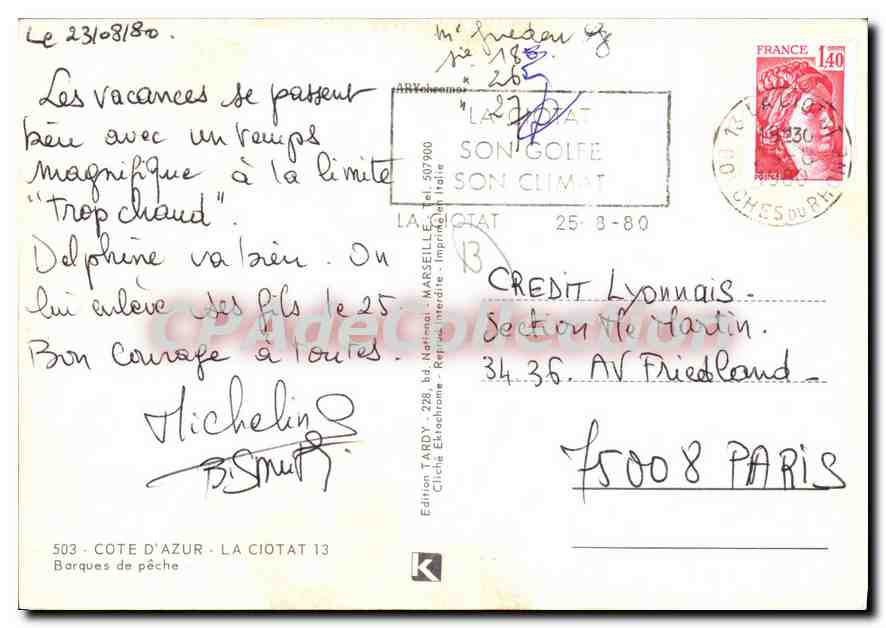 Le 23/08/80.
Les vacances se passent
bien avec un temps
magnifique à la limite
"Trop chaud".
Delphine va bien. On
lui enlève ses fils le 25
Bon courage à toutes.
Micheline
503 - COTE D'AZUR - LA CIOTAT 13
Barques de pêche
Edition TARDY - 228, bd. National - MARSEILLE - Tel. 507900
Cliché Ektachrome - Reprod. Interdite - Imprimé en Italie
K
18
" 26
" 27
ARYchrome
LA CIOTAT
SON GOLFE
SON CLIMAT
LA CIOTAT 25-8-80
FRANCE
1,40
13 LA CIOTAT
BOUCHES DU RHONE
13
CREDIT LYONNAIS -
Section Me Martin.
34 36. AV Friedland -
75008 PARIS
CPAdeCollection